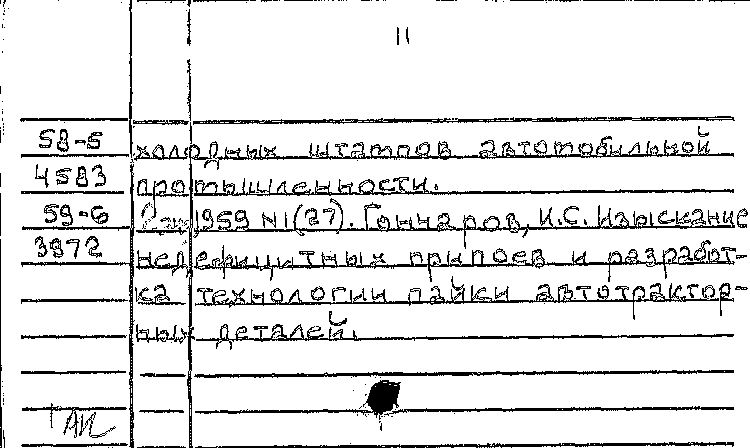 11
58-5 холодных штампов автомобильной
4583 промышленности.
59-6 1959 N1(27). Гончаров, И.С. Изыскание
3972 недефицитных припоев и разработ-
ка технологии пайки автотрактор-
ных деталей.